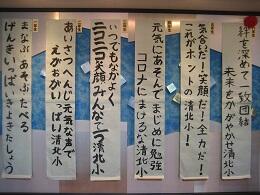 絆を深めて一致団結
未来をかがやかせ清北小
気合いだ!笑顔だ!全力だ!
これがホントの清北小
元気にあそんでまじめに勉強
コロナにまけるな清北小
いつでもなかよく
ニコニコ笑顔みんなそろう清北小
あいさつへんじ元気な声で
えがおがいっぱい清北小
まなぶあそぶたべる
げんきいっぱいきよきたしょう